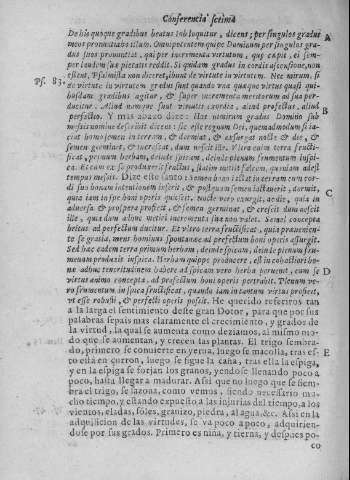 Conferencia setima
De his quoque gradibus beatus Iob loquitur, dicens; per singulos gradus
meos pronuntiabo illum. Omnipotentem quippe Dominum per singulos gra-
dus suos pronuntiat, qui per incrementa virtutum, quę capit, ei sem-
per laudem suę pietatis reddit. Si quidem gradus in cordis ascensione, non
essent, Psalmista non diceret, ibunt de virtute in virtutem. Nec mirum, si
de virtute in virtutem gradus sunt quando vna quæque virtus quasi qui-
busdam gradibus augetur, & super incrementa meritorum ad sua per-
ducitur. Aliud namque sunt virtutis exordia, aliud profectus, aliud
perfectio. Y mas abaxo dize: Hos nimirum gradus Domino sub
messis nomine describit dicens: sic est regnum Dei, quemadmodum si ia-
ciat homo semen in terram, & dormiat, & exsurgat nocte & die, &
semen germinet, & increscat, dum nescit ille. Vltro enim terra fructi-
ficat, primum herbam, deinde spicam, deinde plenum frumentum in spi-
ca. Et cum ex se produxerit fructus, statim mittit falcem, quoniam adest
tempus messis. Dize este santo: Semen homo iactat in terram cum cor-
di suo bonam intentionem inserit, & postquam semen iactauerit, dormit,
quia iam in spe boni operis quiescit. nocte vero exurgit, ac die, quia in
aduersa & prospera proficit, & semen germinat, & crescit dum nescit
ille, quia dum adhuc metiri incrementa sua non valet. Semel concepta
virtus ad perfectum ducitur. Et vltro terra fructificat, quia præuenien-
te se gratia, mens hominis spontanee ad profectum boni operis assurgit.
Sed hæc eadem terra primum herbam, deinde spicam, deinde plenum fru-
mentum producit in spica. Herbam quippe producere, est in cohastiori bo-
næ adhuc teneritudinem habere ad spicam vero herba peruenit, cum se
virtus animo concepta, ad profectum boni operis pertrahit. Plenum ve-
ro frumentum in spica fructificat, quando iam in tantum virtus proficit,
vt esse robusti, & perfecti operis possit. He querido referiros tan
a la larga el sentimiento deste gran Dotor, para que por sus
palabras sepais mas claramente el crecimiento, y grados de
la virtud, la qual se aumenta como deziamos, al mismo mo-
do que se aumentan, y crecen las plantas. El trigo sembra-
do, primero se conuierte en yerua, luego se macolla, tras es-
to està en çurron, luego se sigue la caña, tras ella la espiga,
y en la espiga se forjan los granos, yendose llenando poco a
poco, hasta llegar a madurar. Assi que no luego que se siem-
bra el trigo, se sazona, como vemos, siendo necessario mu-
cho tiempo, y estando expuesto a las injurias del tiempo, a los
vientos, eladas, soles, granizo, piedra, al agua, &c. Assi en la
adquisicion de las virtudes, se va poco a poco, adquirien-
dose por sus grados. Primero es niña, y tierna, y despues po-
co
Ps. 83.
A
B
C
D
E